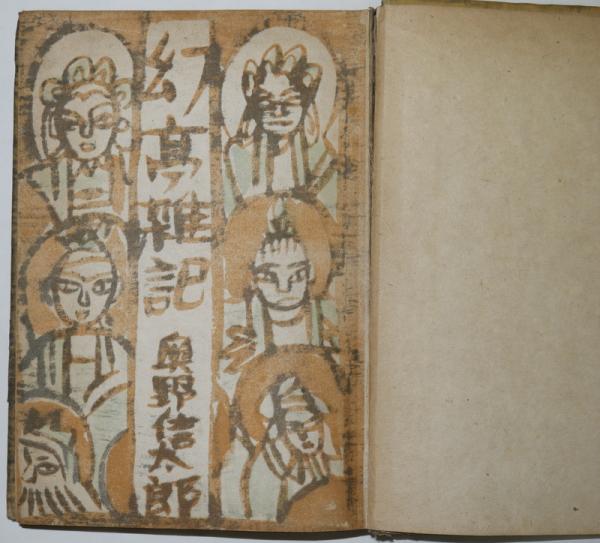 幻亭雑記
奥野信太郎